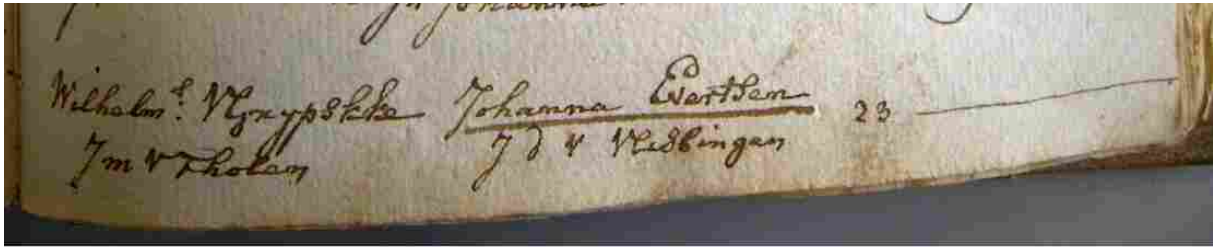 Johanna
Wilhelms. VGrypskke Johanna Evertsen 23
Jm v Tholen J d v Vlissingen